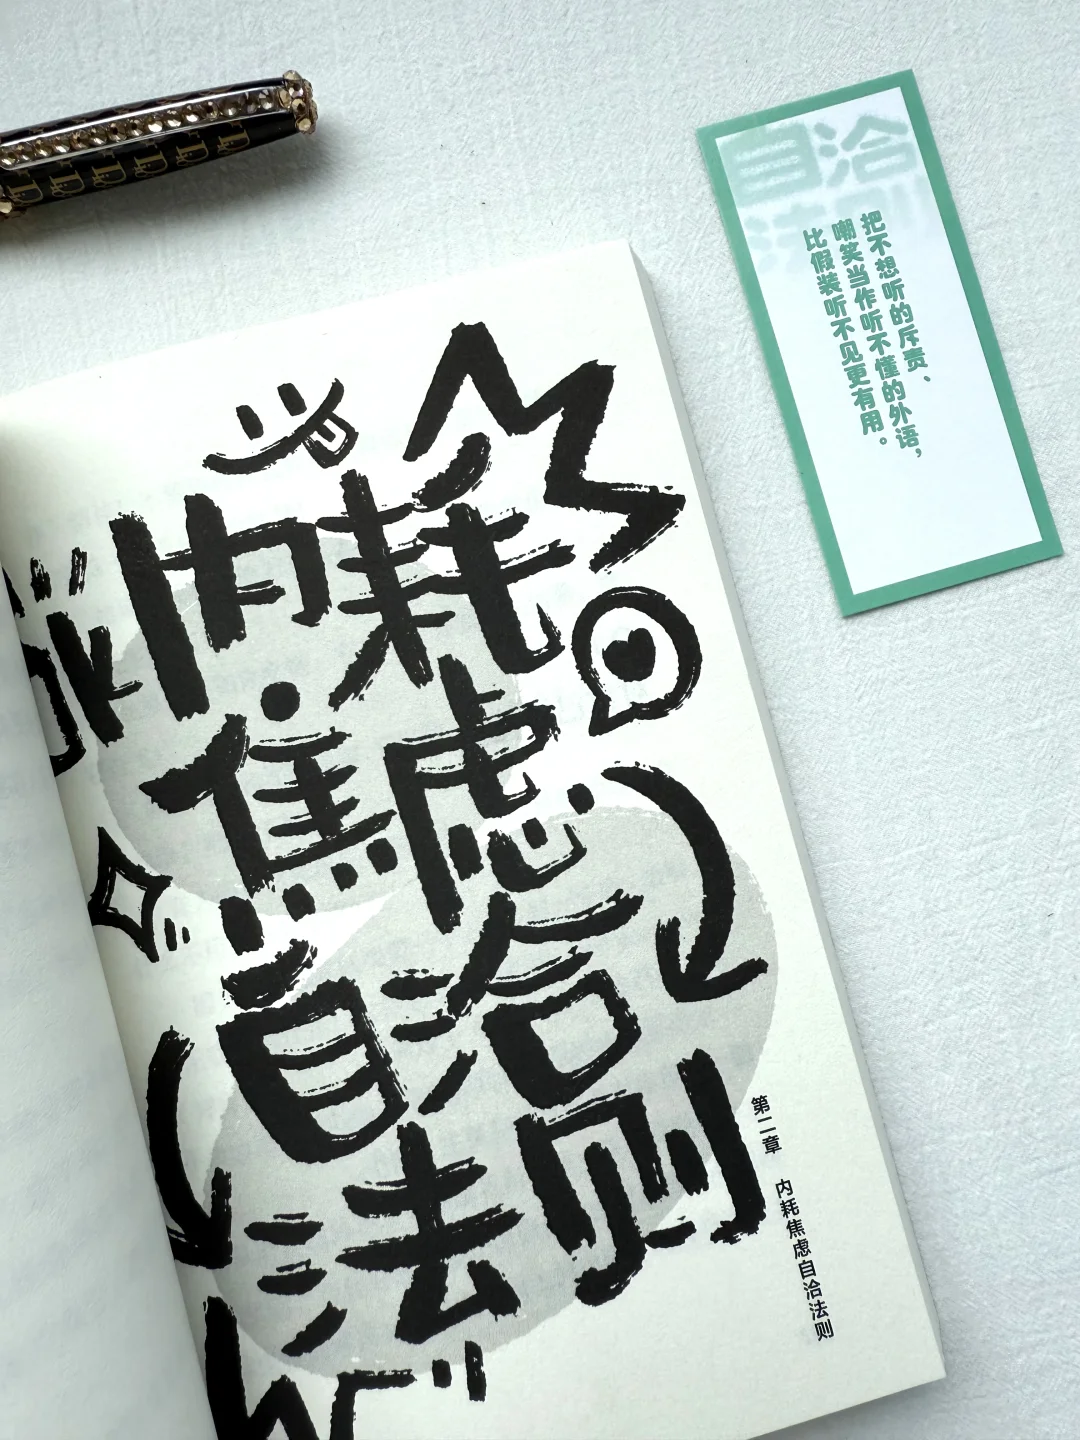 ok
内耗
焦虑
自洽
法则
第二章 内耗焦虑自洽法则
自洽
法则
把不想听的斥责、
嘲笑当作听不懂的外语，
比假装听不见更有用。